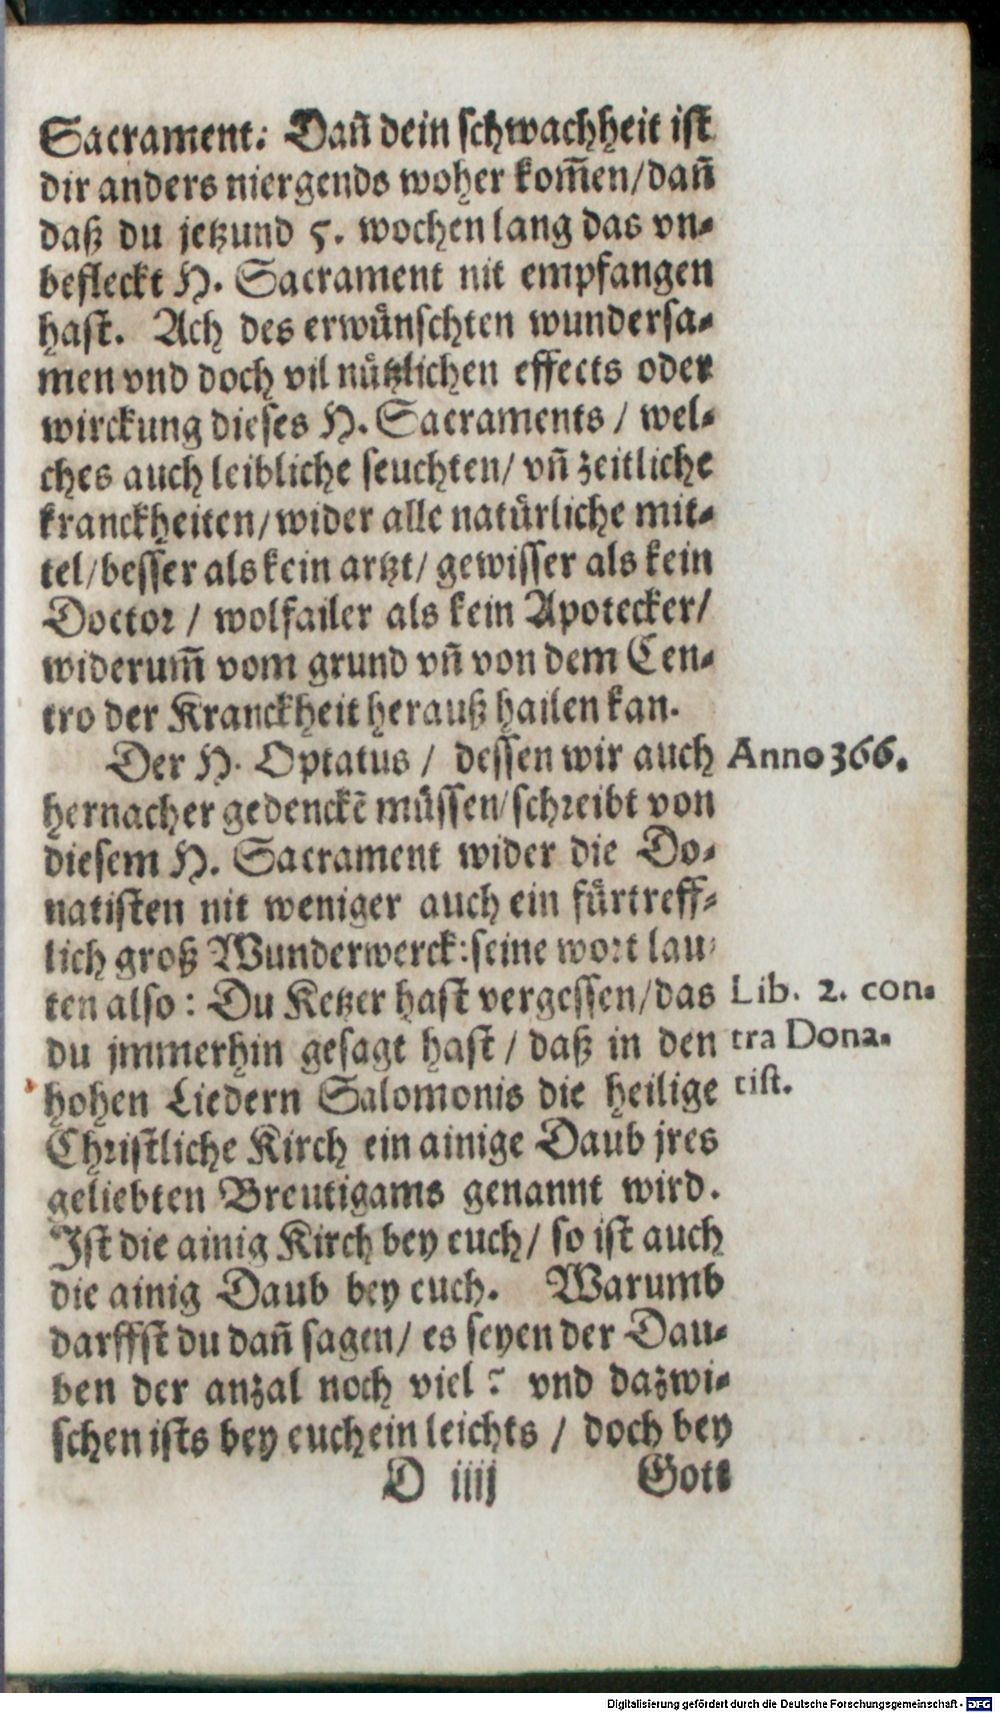 Sacrament: Dañ dein schwachheit ist
dir anders niergends woher kom̃en/dañ
daß du jetzund 5. wochen lang das vn-
befleckt H. Sacrament nit empfangen
hast. Ach des erwünschten wundersa-
men vnd doch vil nützlichen effects oder
wirckung dieses H. Sacraments / wel-
ches auch leibliche seuchten/ vñ zeitliche
kranckheiten/wider alle natürliche mit-
tel/besser als kein artzt/ gewisser als kein
Doctor / wolfailer als kein Apotecker/
widerum̃ vom grund vñ von dem Cen-
tro der Kranckheit herauß hailen kan.
Der H. Optatus / dessen wir auch
Anno 366.
hernacher gedenckē müssen/schreibt von
diesem H. Sacrament wider die Do-
natisten nit weniger auch ein fürtreff-
lich groß Wunderwerck:seine wort lau-
ten also: Du Ketzer hast vergessen/das
Lib. 2. con-
du jmmerhin gesagt hast / daß in den
tra Dona-
hohen Liedern Salomonis die heilige
tist.
Christliche Kirch ein ainige Daub jres
geliebten Breutigams genannt wird.
Ist die ainig Kirch bey euch/ so ist auch
die ainig Daub bey euch. Warumb
darffst du dañ sagen/ es seyen der Dau-
ben der anzal noch viel? vnd dazwi-
schen ists bey euch ein leichts / doch bey
D iiij
Gott
Digitalisierung gefördert durch die Deutsche Forschungsgemeinschaft - DFG